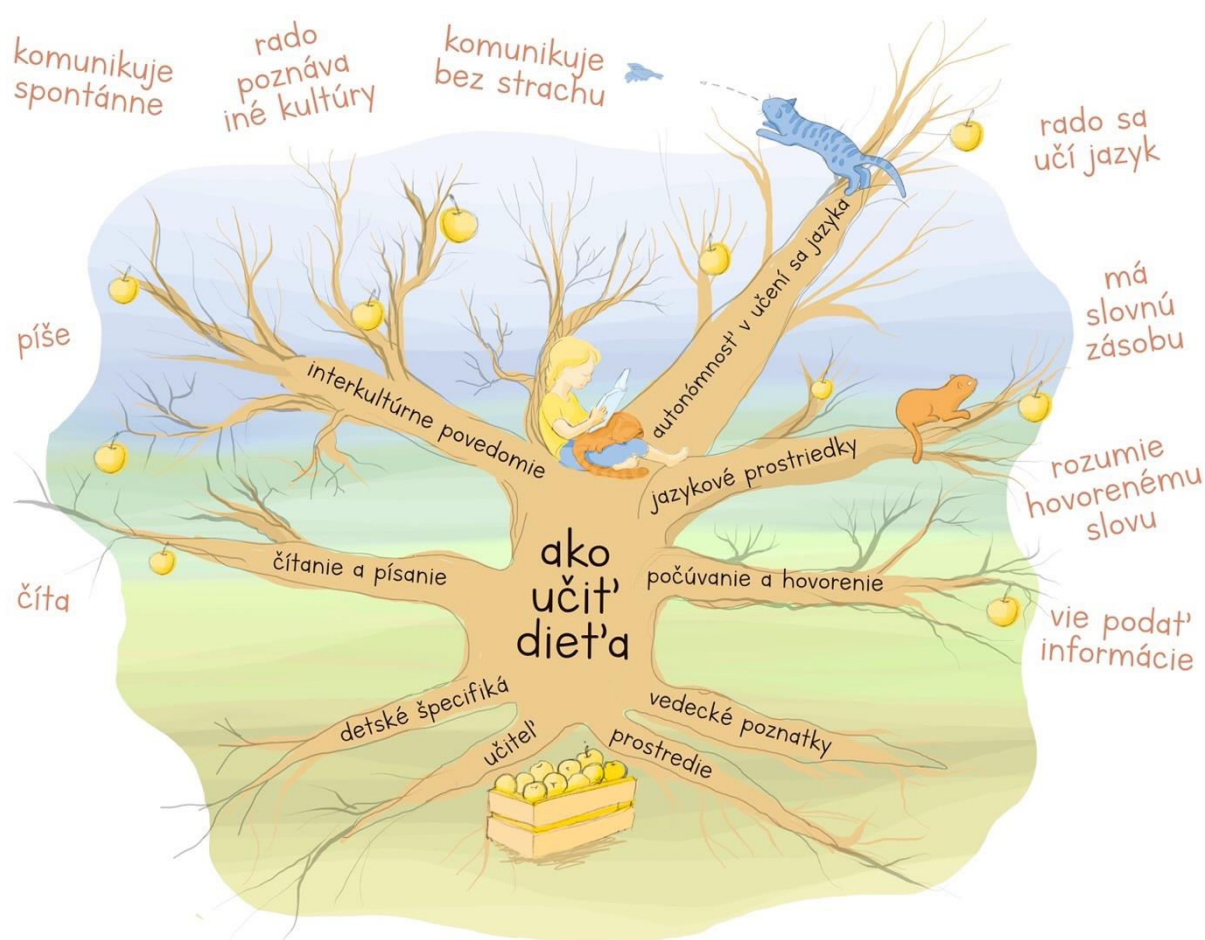 komunikuje
spontánne
rado
poznáva
iné kultúry
komunikuje
bez strachu
rado sa
učí jazyk
má
slovnú
zásobu
rozumie
hovorenému
slovu
vie podať
informácie
píše
číta
interkultúrne povedomie
autonómnosť v učení sa jazyka
jazykové prostriedky
čítanie a písanie
počúvanie a hovorenie
ako
učiť
dieťa
detské špecifiká
učiteľ
prostredie
vedecké poznatky